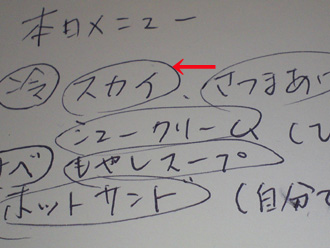 本日メニュー
冷 スカイ、さつまあ
シュークリーム(
ナベ もやしスープ
ホットサンド(自分で